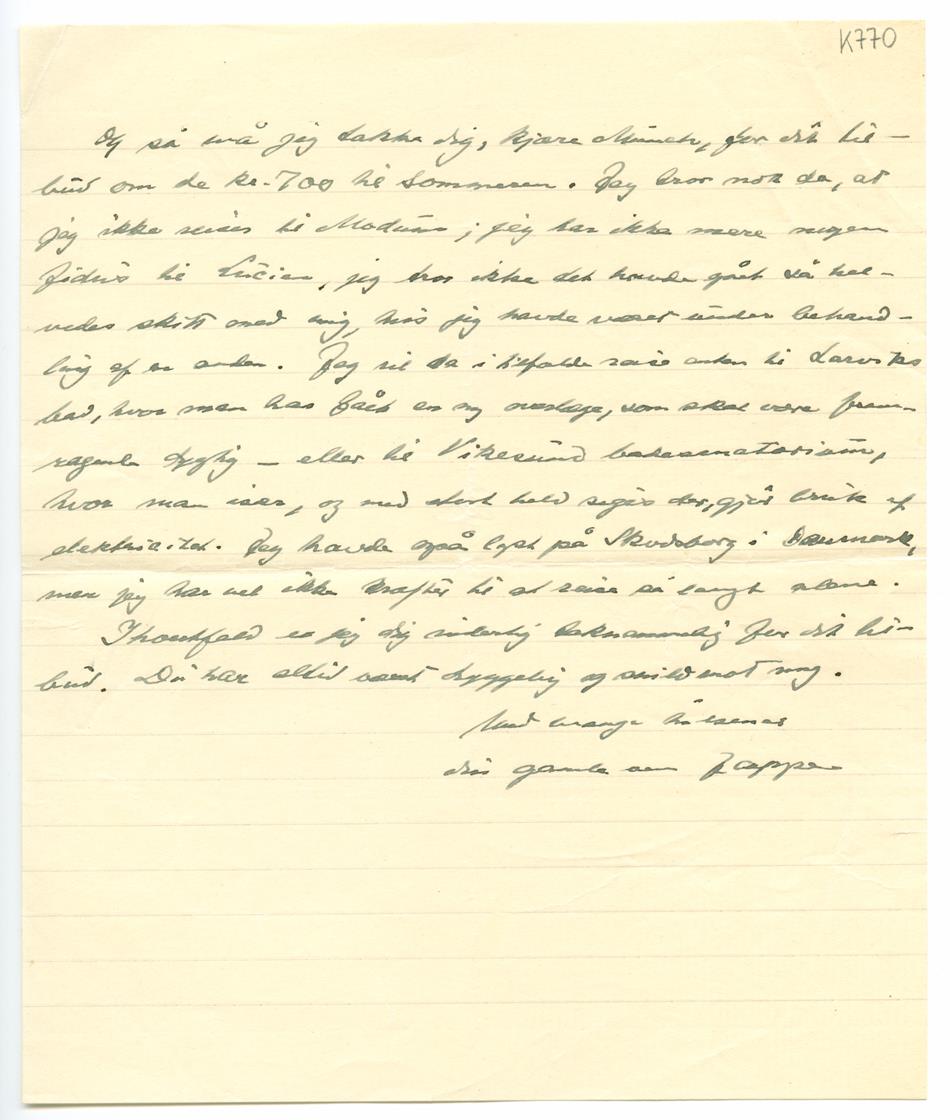 K770
Og så må jeg takke dig, kjære Munch, for dit til-
bud om de kr. 700 til sommeren. Jeg tror nok da, at
jeg ikke reiser til Modum; jeg har ikke mere nogen
fidus til Lucien, jeg tror ikke det havde gått så hel-
vedes skitt med mig, hvis jeg havde været under behand-
ling af en anden. Jeg vil da i tilfælde reise enten til Larviks
bad, hvor man har fått en ny overlæge, som skal være frem-
ragende dygtig – eller til Vikesund badesanatorium,
hvor man især, og med stort held siges der, gjør bruk af
elektricitet. Jeg havde også lyst på Skodsborg i Danmark,
men jeg har vel ikke kræfter til at reise så langt alene.
I hvertfald er jeg dig inderlig taknemmelig for dit til-
bud. Du har altid været hyggelig og snild mot mig.
Med mange hilsener
din gamle ven Jappe